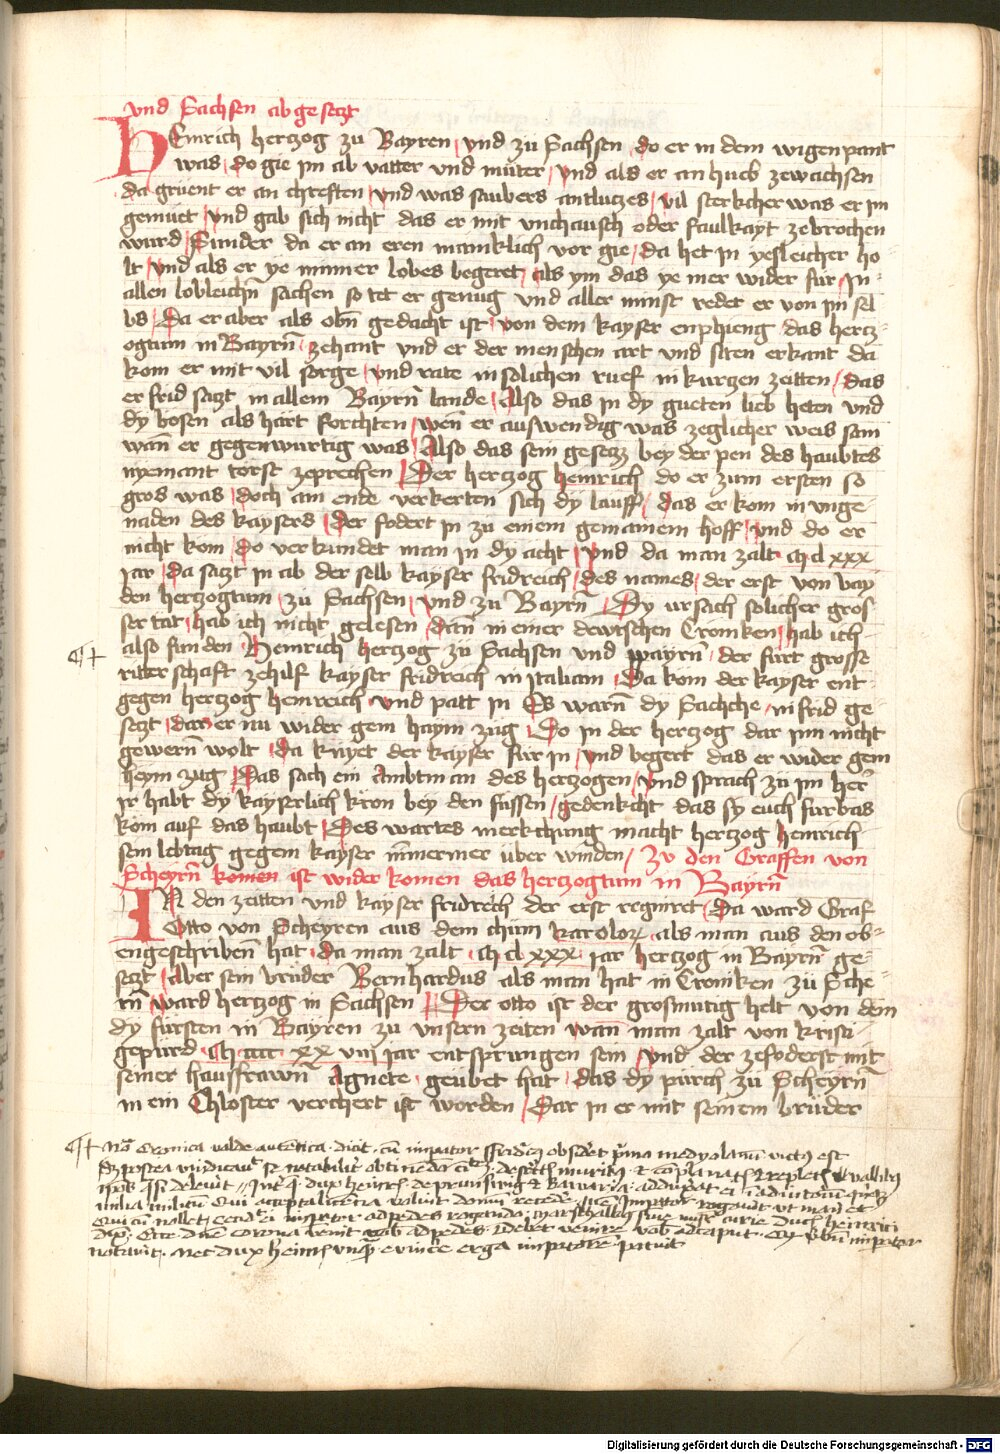 vnd Sachsen abgesetzt
HEinrich hertzog zu Bayren vnd zu Sachsen do er in dem wigenpant
was do gie im ab vatter vnd muter vnd als er an hueb zewachsen
da gruent er an chreften vnd was saubers antlutzes vil sterkcher was er im
gemuet vnd gab sich nicht das er mit vnchausch oder faulkayt zebrochen
wurd Sunder da er an eren manklich vor gie da het in yesleicher ho
lt vnd als er ye minner lobes begeret als ym das ye mer wider fur In
allen lobleichn sachen so tet er genug vnd aller minst redet er von im sel
bs Da er aber als obn gedacht ist von dem kayser enphieng das hertz
ogtum in Bayrn zehant vnd er der menschen art vnd siten erkant da
kom er mit vil sorge vnd rate in solichen ruef in kurtzen zeitten das
er frid satzt in allem Bayrn lande Also das in dy gueten lieb heten vnd
dy bosen als hart forchten wen er auswendig was zeglicher weis sam
wan er gegenwurtig was Also das sein gesetz bey der pen des haubtes
nyemant torst zeprechen Der hertzog heinrich do er zum ersten so
gros was doch am ende verkerten sich dy lauff das er kom in vnge
naden des kaysers der fodert in zu einem gemainem hoff vnd do er
nicht kom do verkundet man in dy acht vnd da man zalt M c lxxx
iar da satzt in ab der selb kayser fridreich des names der erst von bay
den hertzogtum zu Sachsen vnd zu Bayrn Dy vrsach solicher gros
ser tat hab ich nicht gelesen dan in einer dewtschen Croniken hab ich
also funden Heinrich hertzog zu Sachsen vnd payrn der furt grosse
ritterschaft zehilf kayser fridreich in Italiam Da kom der kayser ent
gegen hertzog heinreich vnd patt in Es warn dy Sachche in frid ge
setzt das er nu wider gem haym zug Do in der hertzog dar inn nicht
gewern wolt da knyet der kayser fur in vnd begert das er wider gem
heym zug Das sach ein Ambtman des hertzogen vnd sprach zu im her
ir habt dy kayserlich kron bey den fussen gedenkcht das sy euch furbas
kom auf das haubt Des wartes merkchung macht hertzog heinrich
sein lebtag gegem kayser nimmermer vber winden Zu den Graffen von
Scheyrn komen ist wider komen das hertzogtum in Bayrn
IN den zeitten vnd kayser fridrech der erst regniret Da ward Graf
Otto von Scheyren aus dem chum karolorum als man aus den ob
engeschriben hat da man zalt M c lxxx iar hertzog in Bayrn ge
setzt Aber sein bruder Bernhardus als man hat in Croniken zu Sche
rn ward hertzog in Sachsen Der otto ist der grosmutig helt von dem
dy fursten in Bayren zu vnsern zeiten wan man zalt von kristi
gepurd M cccc xx viii iar entsprungen sein vnd der zefoderst mit
seiner hausfrawn Agnete geubet hat das dy purch zu Scheyrn
in ein Chloster verchert ist worden Dar in er mit seinem bruder
Cronica valde autentica dicit cum imperator
delevit dux heinrich de prunswig et Bawarie
milia militum Qui accepta licentia voluit domum recedere imperator rogavit vt maneret
Qui cum nollet cecidit ei imperator ad pedes rogando curie ducis heinrici
dixit Ecce domine corona venit vobis ad pedes debet venire vobis ad caput imperator
notavit nec dux heinricus erga imperatorem
Digitalisierung gefördert durch die Deutsche Forschungsgemeinschaft - DFG